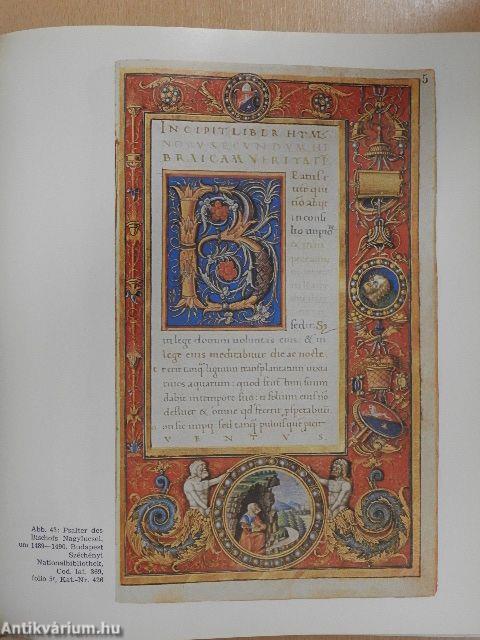 5
INCIPIT LIBER HYM
NORV SECVNDVM HE
BRAICAM VERITATĒ
B
Eatus
uir qui
nō abiit
in consi
lio impioꝝ
sedit: S;
in lege domini uoluntas eius: & in
lege eius meditabitur die ac nocte.
erit tanq̄ lignum transplantatum iuxta
riuos aquarum: quod fructum suum
dabit in tempore suo: et folium eius nō
defluet & omne qd fecerit
non sic impij: sed tanq̄ puluis que proicit
VENTVS.
Abb. 43: Psalter des
Bischofs Nagylucsei,
um 1489—1490. Budapest
Széchényi
Nationalbibliothek,
Cod. lat. 369,
folio 5r, Kat.-Nr. 426
Antikvárium.hu